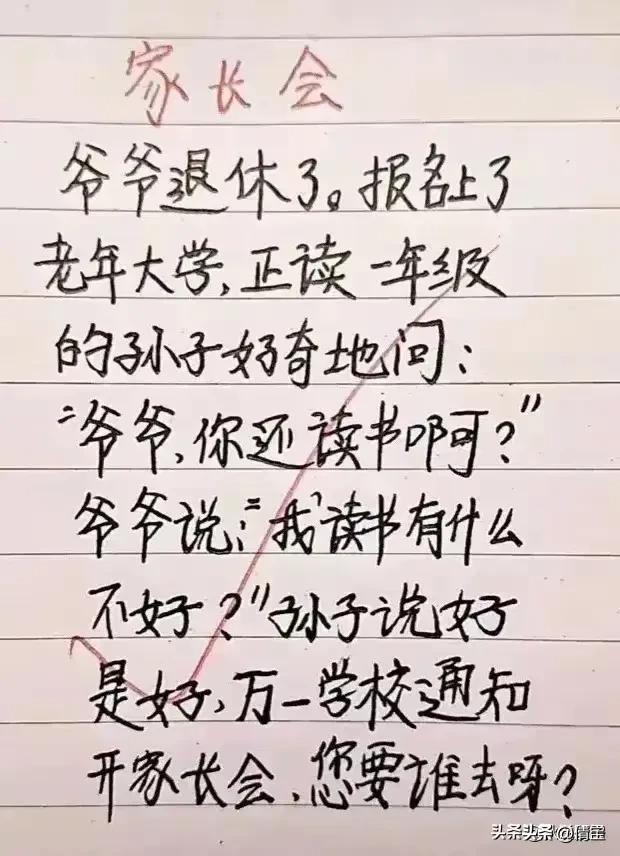 家长会
爷爷退休了。报名上了
老年大学,正读一年级
的孙子好奇地问:
“爷爷,你还读书啊?”
爷爷说:“我读书有什么
不好?”孙子说好
是好,万一学校通知
开家长会、您要谁去呀?